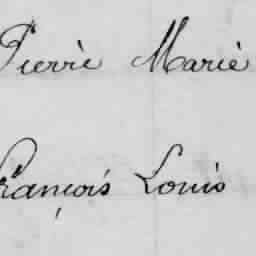 Pierre Marie
François Louis